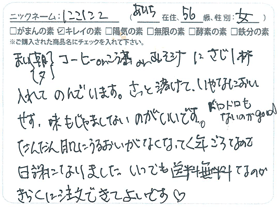 ニックネーム: にこにこ あいち 在住、56 歳、性別: 女
□がまんの素 ☑キレイの素 □陽気の素 □無限の素 □酵素の素 □鉄分の素
※ご購入された商品名にチェックを入れて下さい。
まい朝 コーヒーor こう茶 or みそ汁 にさじ1杯
入れてのんでいます。さっと溶けて、いわかんない
です。味もじゃましないのがいいです。
ドロドロもないのがgood
だんだん肌にうるおいがなくなってく年ごろなので
日課になりました いつでも送料無料なのが
きらくに注文できてよいです♡